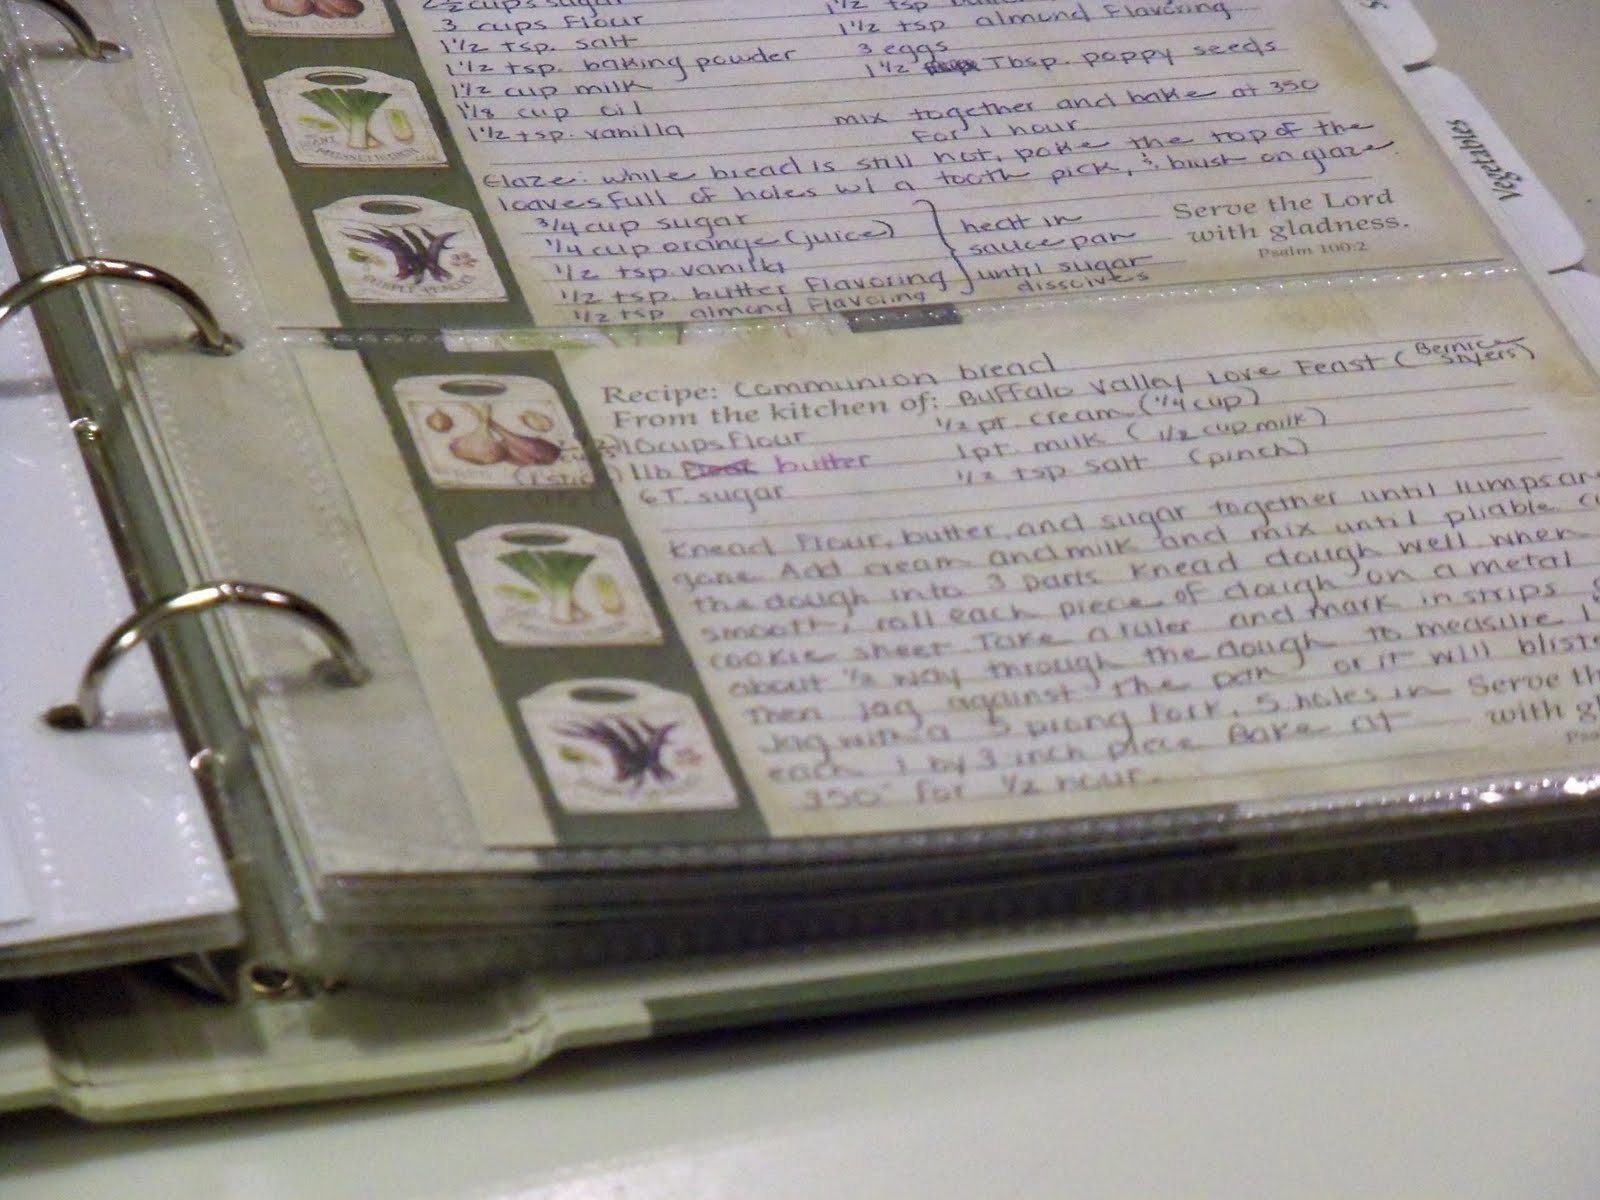 2 1/2 cups sugar
3 cups flour
1 1/2 tsp. salt
1 1/2 tsp. baking powder
1 1/2 cup milk
1 1/8 cup oil
1 1/2 tsp. vanilla
1 1/2 tsp
1 1/2 tsp almond flavoring
3 eggs
1 1/2 Tbsp. poppy seeds
mix together and bake at 350
for 1 hour
Glaze: while bread is still hot, poke the top of the
loaves full of holes w/ a tooth pick, & brush on glaze.
3/4 cup sugar
1/4 cup orange (juice)
1/2 tsp. vanilla
1/2 tsp. butter flavoring
1/2 tsp almond flavoring
heat in
sauce pan
until sugar
dissolves
Serve the Lord
with gladness.
Psalm 100:2
Vegetables
Recipe: Communion bread
From the kitchen of: Buffalo Valley Love Feast (Bernice
10 cups flour
1 lb butter
6 T. sugar
1/2 pt. cream (1/4 cup)
1 pt. milk (1/2 cup milk)
1/2 tsp salt (pinch)
Knead flour, butter, and sugar together until lumps are
gone. Add cream and milk and mix until pliable
the dough into 3 parts. Knead dough well when
smooth, roll each piece of dough on a metal
cookie sheet. Take a ruler and mark in strips
about 1/2 way through the dough to measure 1
Then jag against the pan or it will bliste
Jag with a 5 prong fork, 5 holes in
each 1 by 3 inch piece. Bake at
350° for 1/2 hour.
Serve th
with gl